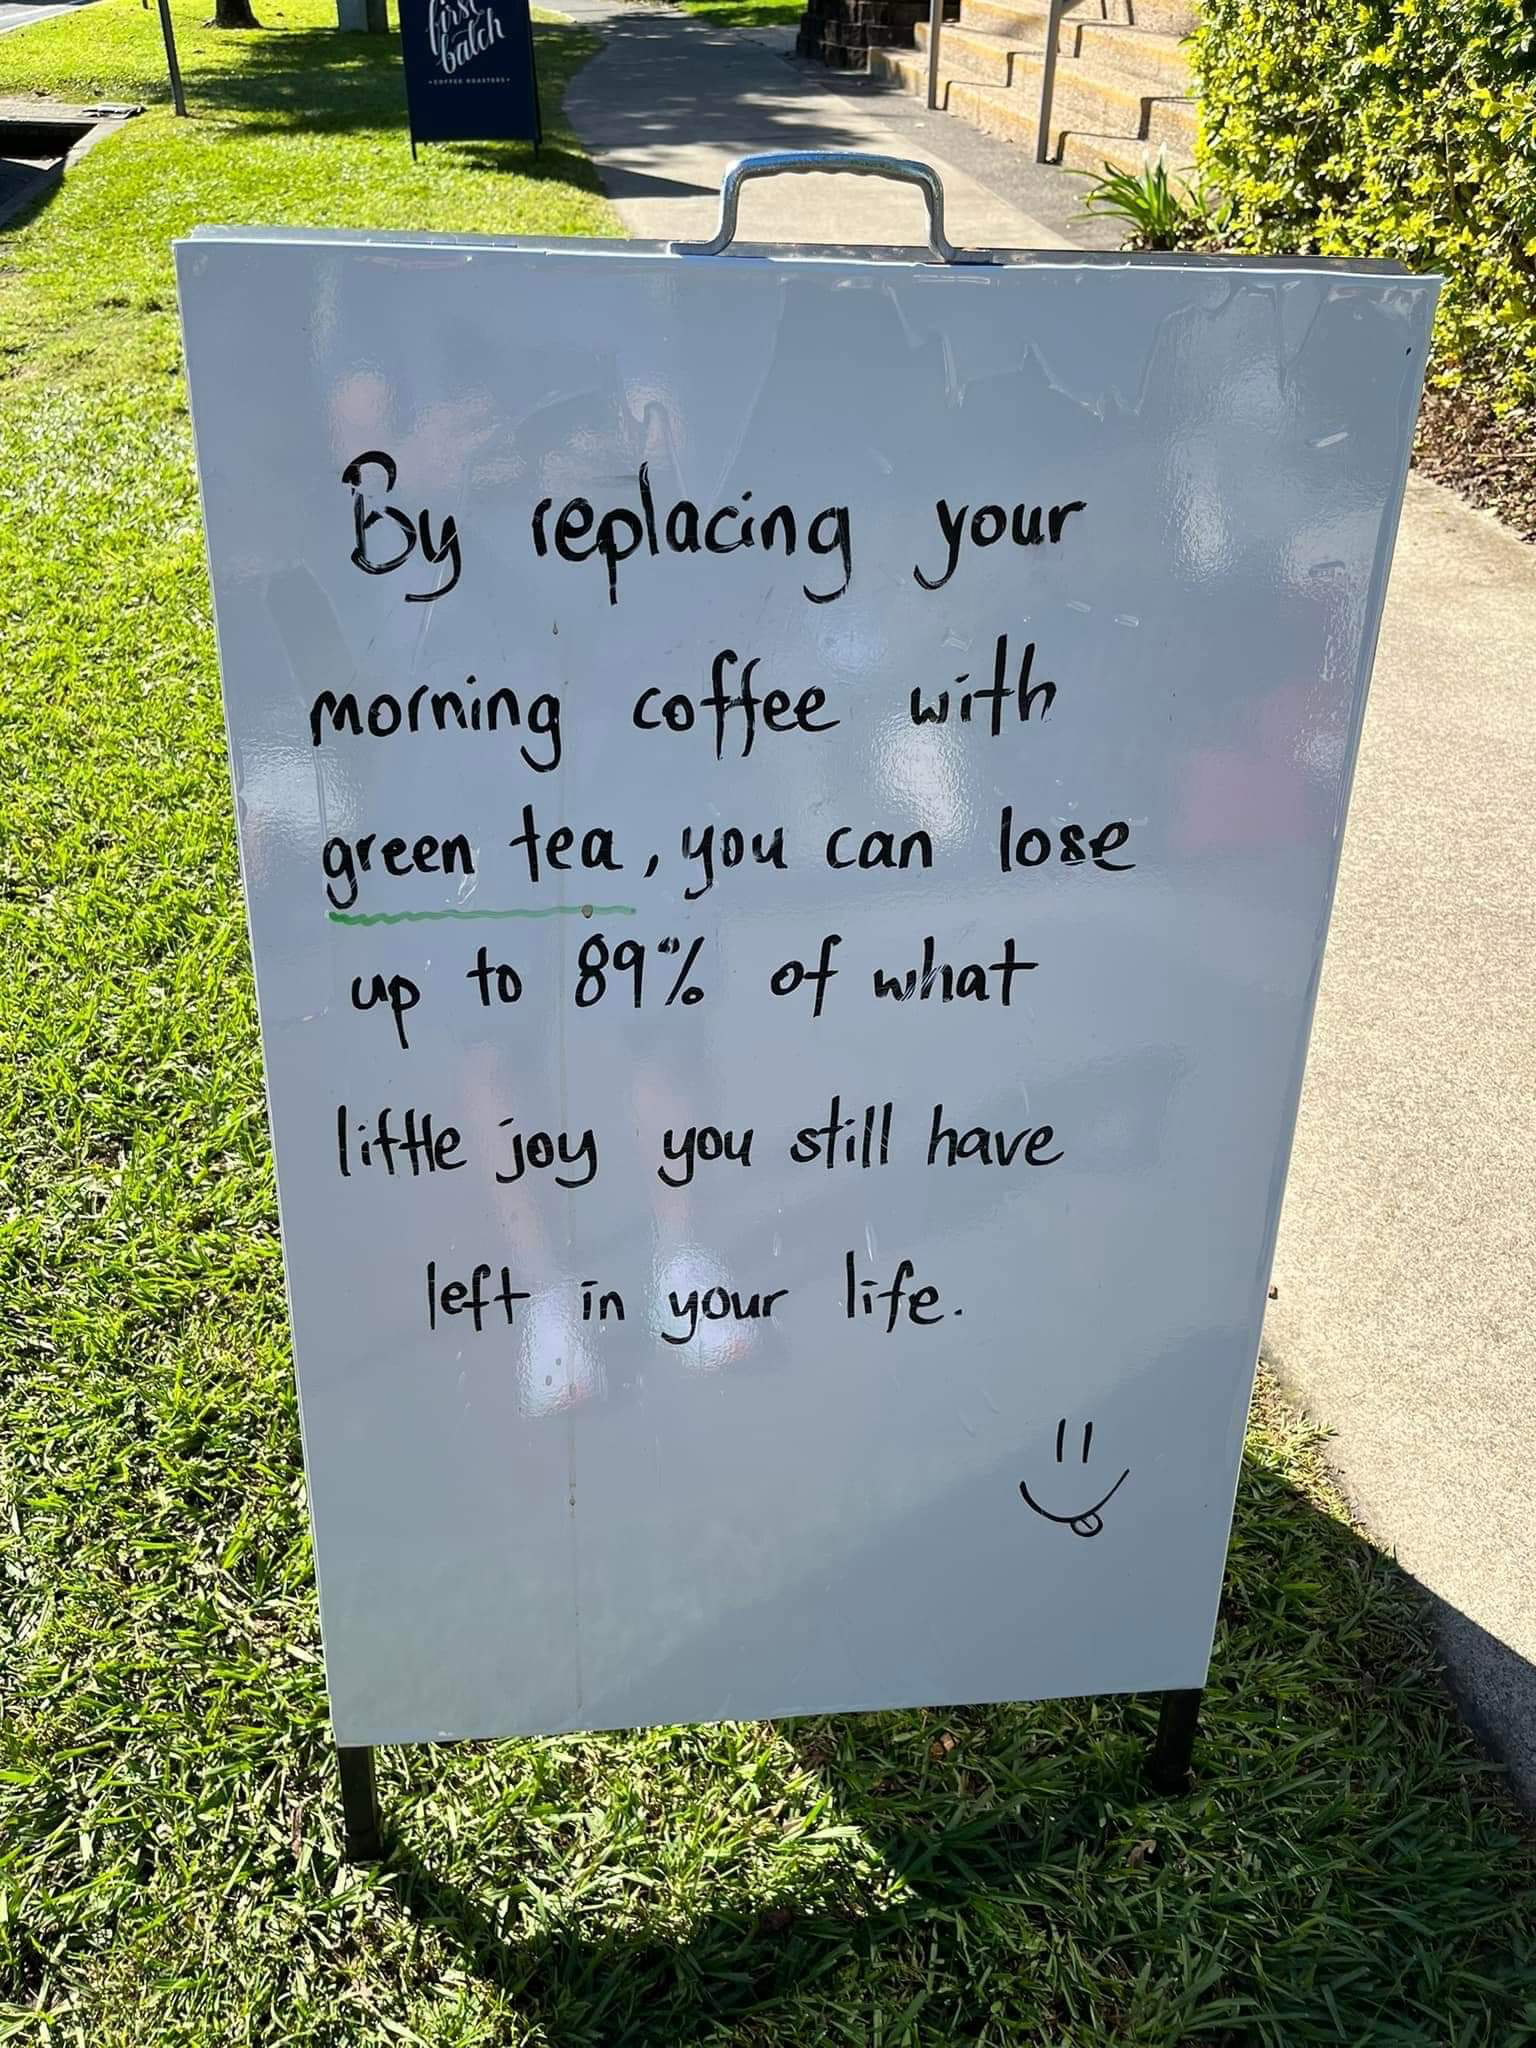 first
batch
COFFEE ROASTERS
By replacing your
morning coffee with
green tea, you can lose
up to 89% of what
little joy you still have
left in your life.